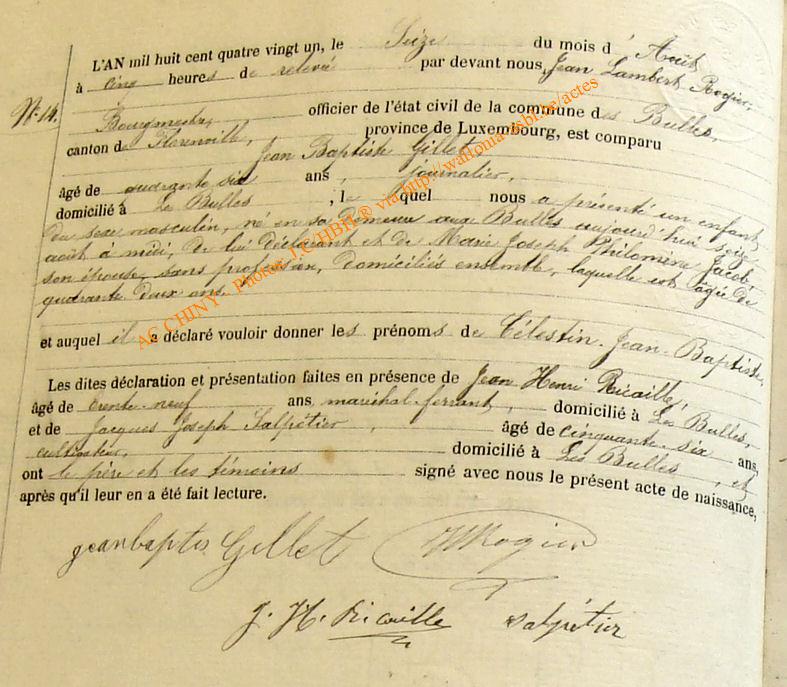 L'AN mil huit cent quatre vingt un, le Seize du mois d'Août
à cinq heures de relevé par devant nous, Jean Lambert Rogier,
N° 14.
Bourgmestre, officier de l'état civil de la commune des Bulles,
canton de Florenville, province de Luxembourg, est comparu
Jean Baptiste Gillet,
âgé de quarante six ans, journalier,
domicilié à Les Bulles, lequel nous a présenté un enfant
du sexe masculin, né en sa demeure aux Bulles aujourd'hui seize
août à midi, de lui déclarant et de Marie Joseph Philomène Jacob,
son épouse, sans profession, domiciliés ensemble, laquelle est âgée de
quarante deux ans,
et auquel il a déclaré vouloir donner les prénoms de Célestin-Jean-Baptiste,
Les dites déclaration et présentation faites en présence de Jean Henri Ricaille,
âgé de trente-neuf ans, maréchal-ferrant, domicilié à Les Bulles,
et de Jacques Joseph Salpétier, âgé de cinquante-six ans,
cultivateur, domicilié à Les Bulles, et
ont le père et les témoins signé avec nous le présent acte de naissance,
après qu'il leur en a été fait lecture.
jeanbaptis Gillet Rogier
J. H. Ricaille salpétier
AC CHINY - Photos J.C/HBH ® via http://wallonia-asbl.be/actes